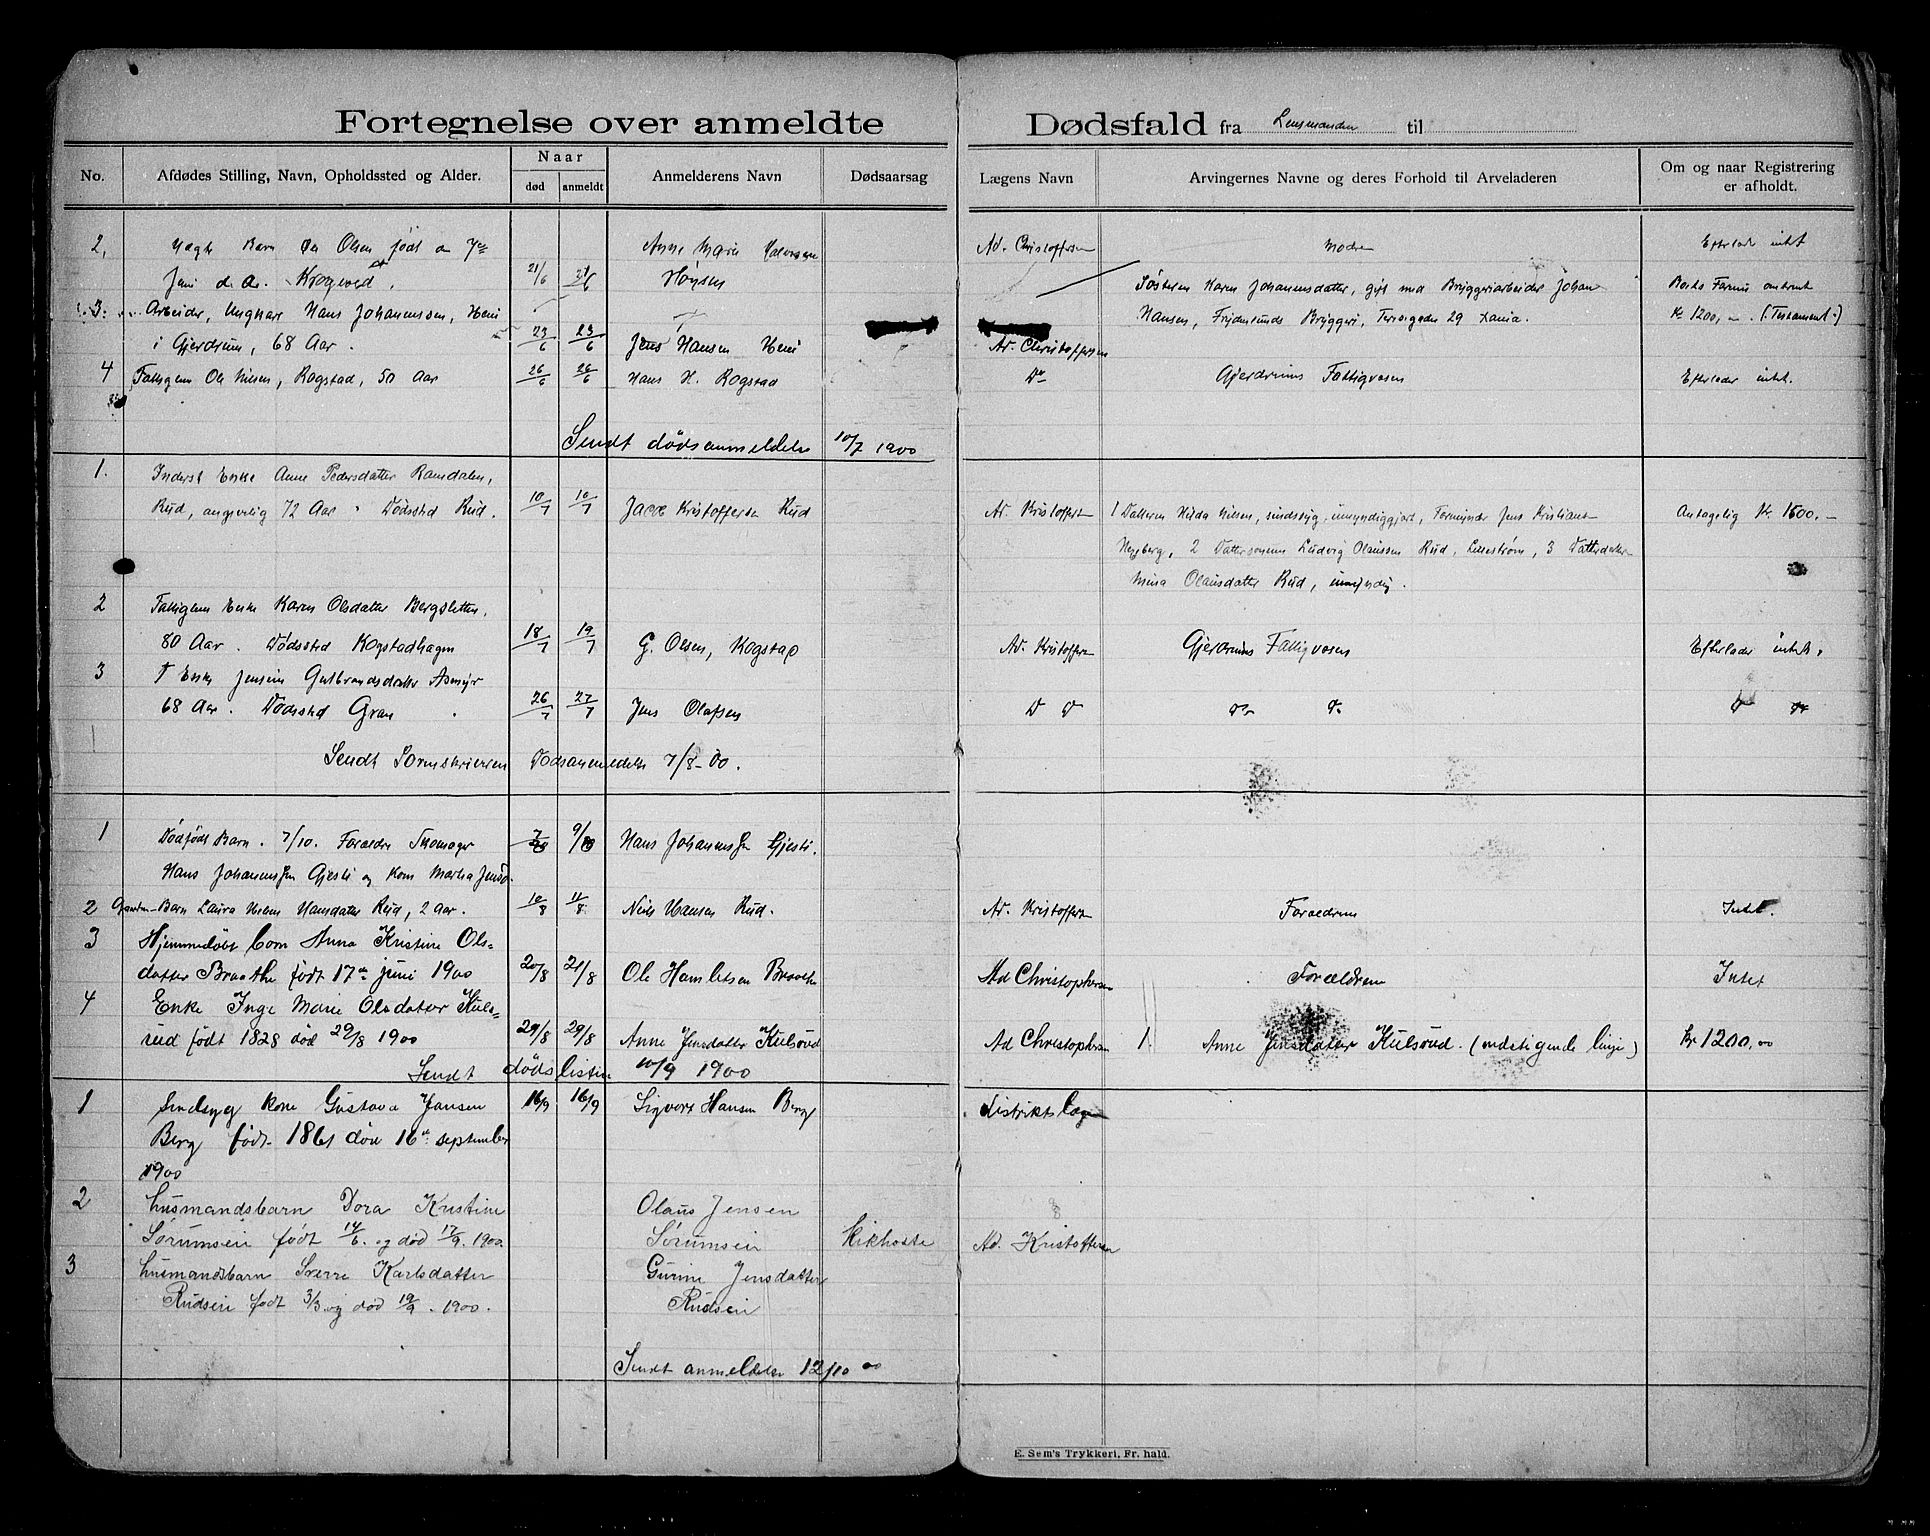 Fortegnelse over anmeldte Dødsfald fra Lensmanden til
No. Afdødes Stilling, Navn, Opholdssted og Alder. Naar død anmeldt Anmelderens Navn Dødsaarsag Lægens Navn Arvingernes Navne og deres Forhold til Arveladeren Om og naar Registrering er afholdt.
2, Barn Olsen født 7de Anne Marie Ad. Christoffersen Efterlader intet
Juni d. A. Krogsved. 21/6 21/6
3. Arbeider, Ungkarl Hans Johannessen, Heni Søsteren Karen Johannesdatter, gift med Bryggeriarbeider Johan
i Gjerdrum, 68 Aar. 23/6 23/6 Jens Hansen Heni Ad. Christoffersen Hansen, Frydenlunds Bryggeri, 29 Xania. Kr 1200,- (Testament.)
4 Ole Nilsen, Rogstad, 50 Aar 26/6 26/6 Hans H. Rogstad Do Gjerdrums Fattigvæsen Efterlader intet.
Sendt dødsanmeldelse 10/7 1900
1. Inderst Enke Anne Pedersdatter Ramdalen,
Rud, angivelig 72 Aar. Dødssted Rud. 10/7 10/7 Jacob Kristoffersen Rud Ad. Kristoffersen 1 Datteren Hilda Nilsen, sindssyg, umyndiggjort, Formynder Jens Kristiansen Antagelig Kr. 1600.-
2 Dattersønnen Ludvig Olaussen Rud, Lillestrøm, 3 Datterdatter
Mina Olausdatter Rud, umyndig.
2 Enke Karen Olsdatter Bergsletten,
80 Aar. Dødssted Rogstadhagen 18/7 19/7 G. Olsen, Rogstad Ad. Kristoffersen Gjerdrums Fattigvæsen Efterlader intet.
3 Enke Jensine Gulbrandsdatter Asmyr
68 Aar. Dødssted Gran 26/7 27/7 Jens Olafsen
Sendt Sorenskriveren Dødsanmeldelse 7/8-00.
1 Dødfødt Barn. 7/10. Forældre Skomager Hans Johannessen Gjesti.
Hans Johannessen Gjesti og Kone Martha
2 Barn Laura Helene Hansdatter Rud, 2 Aar. 10/8 11/8 Niels Hansen Rud. Ad. Kristoffersen Forældrene Intet.
3 Hjemmedøbt barn Anna Kristine Ols-
datter Braathe født 17de juni 1900 20/8 21/8 Ole Braathe Ad Christophersen Forældrene Intet
4 Enke Inge Marie Olsdatter Kuls-
rud født 1828 død 29/8 1900 29/8 29/8 Anne Jensdatter Kulsrud Ad Christophersen 1. Anne Jensdatter Kulsrud. (nedstigende linje) kr 1200.00
Sendt dødslisten 10/9 1900
1 Sindsyg kone Gustava Jansen 16/9 16/9 Sigvart Hansen Berg distriktslægen
Berg født 1861 død 16de september
1900
2 husmandsbarn Dora Kristine Olaus Jensen
Sørumseie født 14/6 og død 17/9 1900. Sørumseie Kikhoste Ad. Kristoffersen
3 husmandsbarn Sverre Karlsdatter Gurine Jensdatter
Rudseie født 3/3 og død 19/9 1900. Rudseie
Sendt anmeldelse 12/10 00
E. Sem's Trykkeri, Fr. hald.